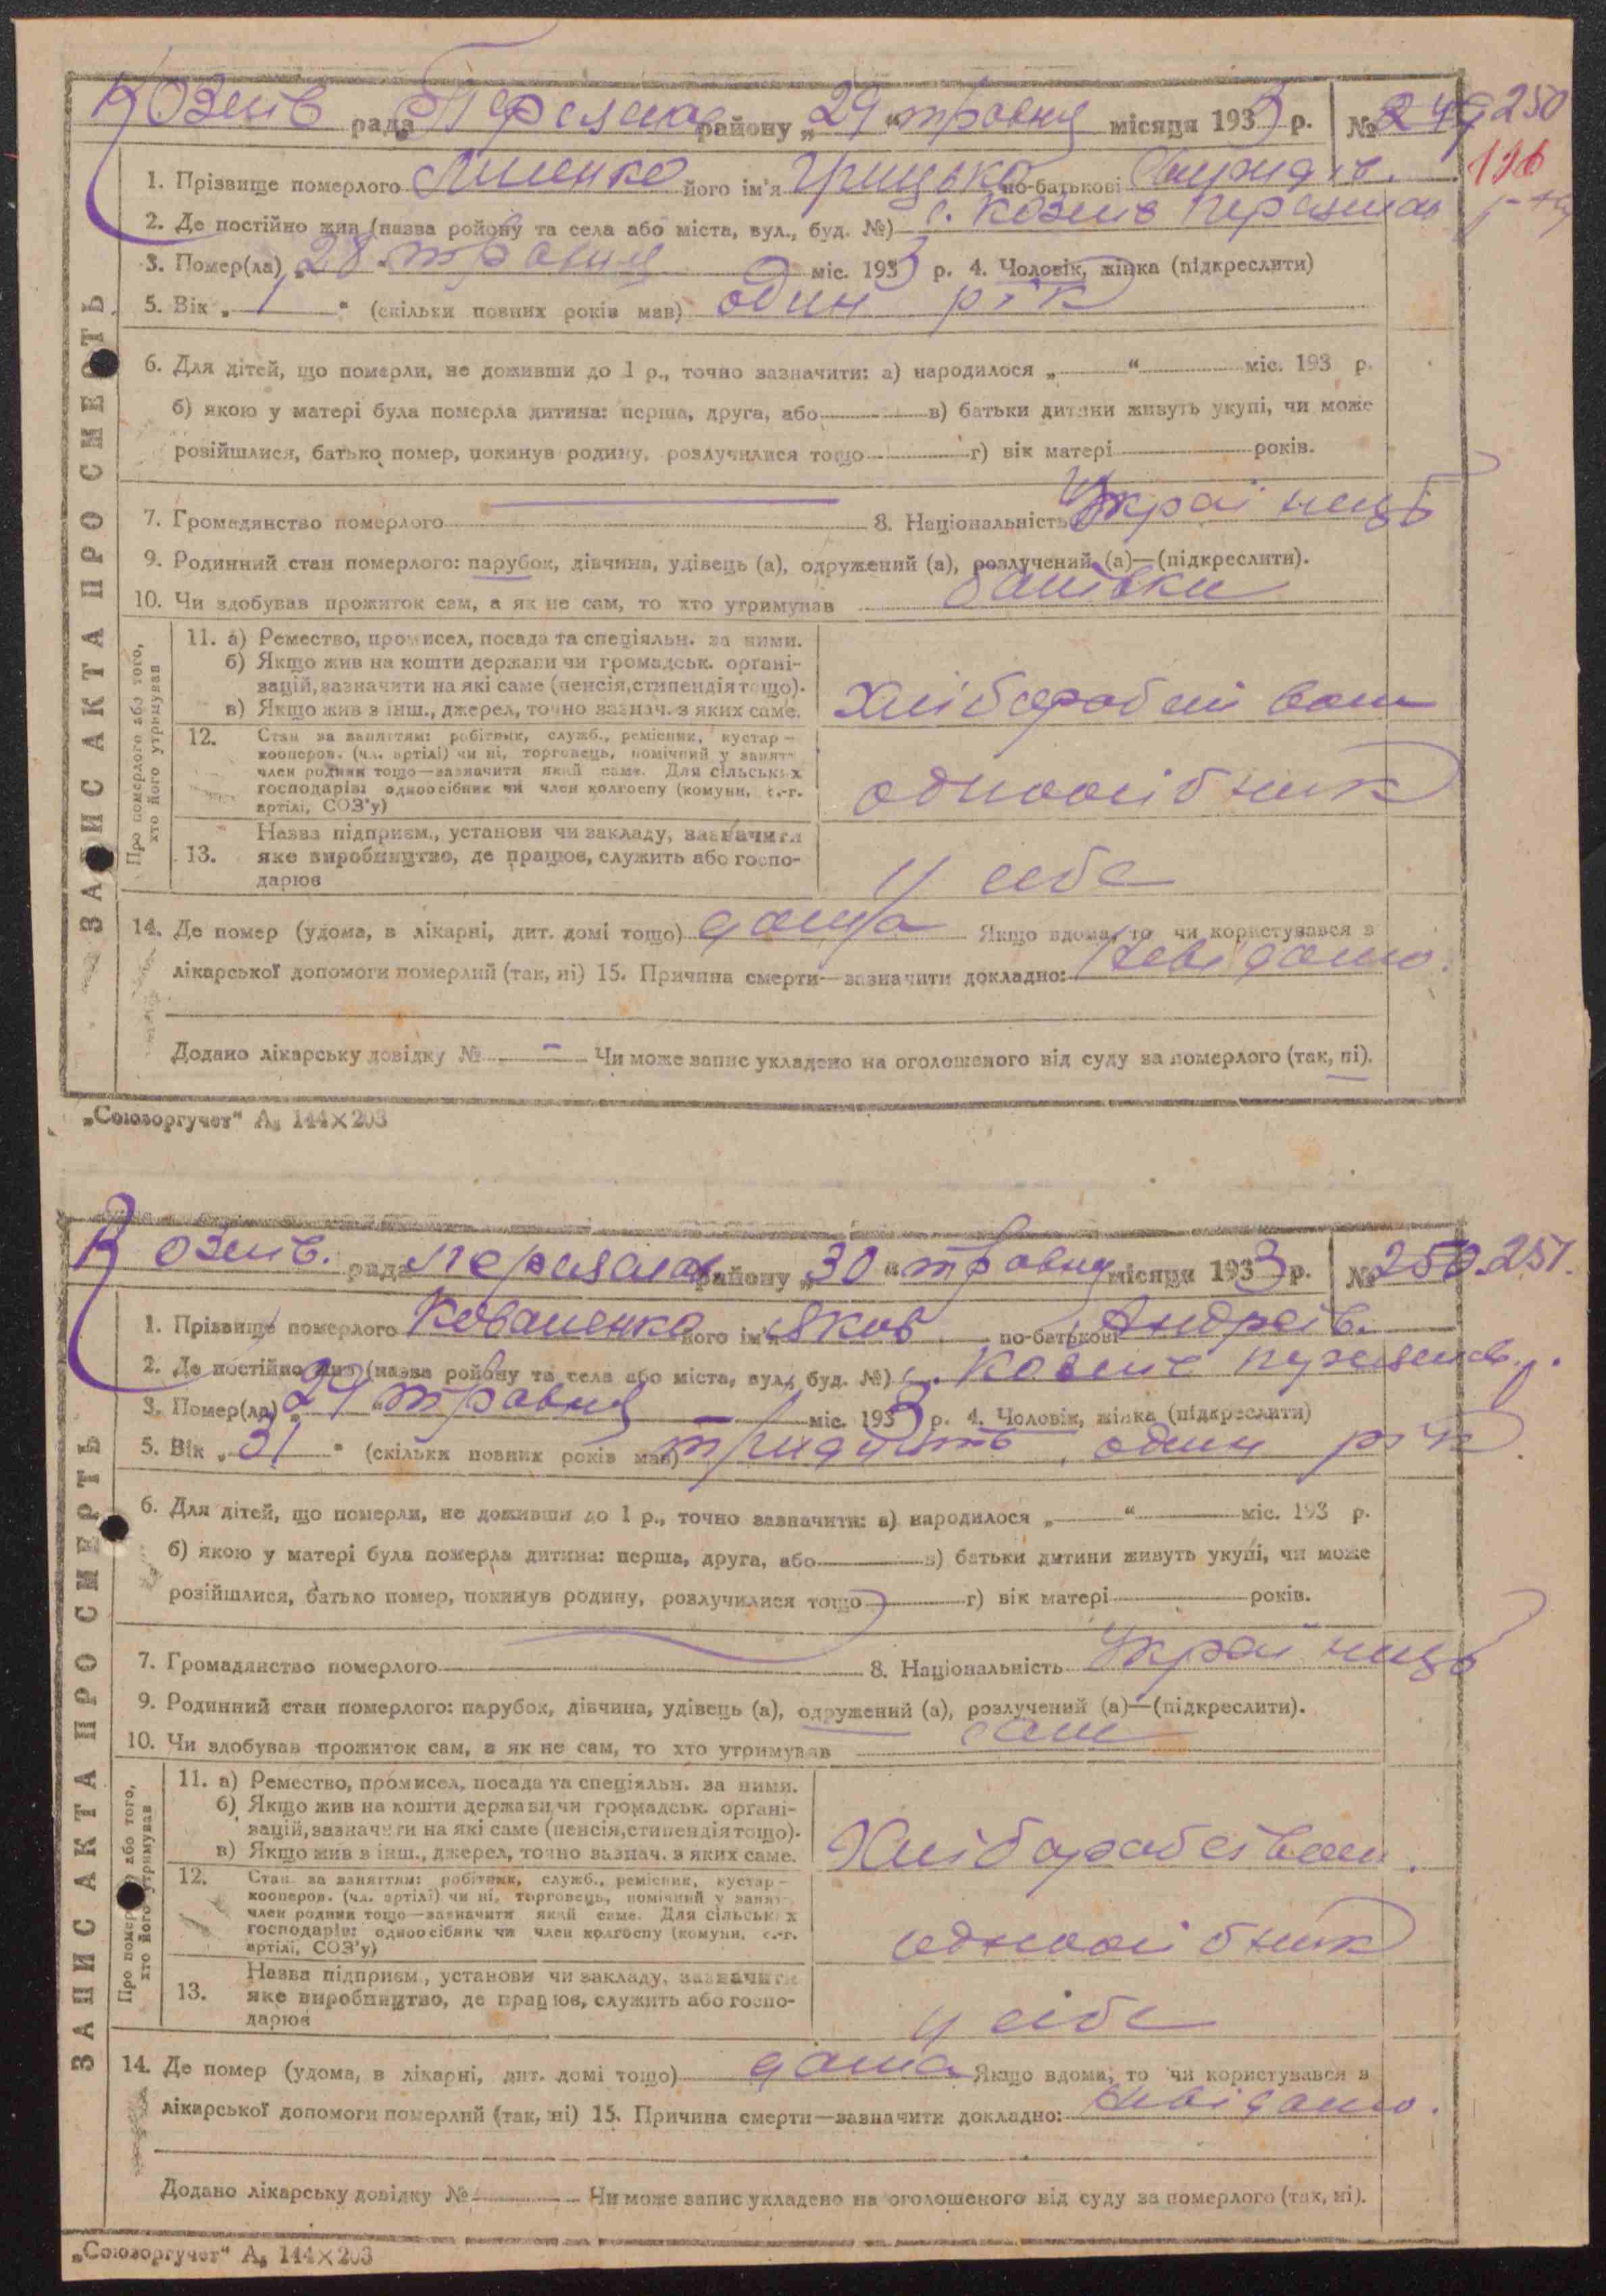 Козлів рада Переяслав району „29“ травня місяця 1933 р. № 249 250
116
1. Прізвище померлого його ім'я Грицько по-батькові
2. Де постійно жив (назва ройону та села або міста, вул., буд. №) с. Козлів Переяслав
3. Помер(ла) „28 травня міс. 1933 р. 4. Чоловік, жінка (підкреслити)
5. Вік „ 1 “ (скільки повних років мав) один рік
6. Для дітей, що померли, не доживши до 1 р., точно зазначити: а) народилося „ “ міс. 193 р.
б) якою у матері була померла дитина: перша, друга, або в) батьки дитини живуть укупі, чи може
розійшлися, батько помер, покинув родину, розлучилися тощо г) вік матері років.
7. Громадянство померлого 8. Національність Українець
9. Родинний стан померлого: парубок, дівчина, удівець (а), одружений (а), розлучений (а)—(підкреслити).
10. Чи здобував прожиток сам, а як не сам, то хто утримував батьки
Про померлого або того, хто його утримував
11. а) Ремество, промисел, посада та спеціяльн. за ними.
б) Якщо жив на кошти держави чи громадськ. органі-
зацій, зазначити на які саме (пенсія, стипендія тощо).
в) Якщо жив з інш., джерел, точно зазнач. з яких саме.
Хліборобством
12. Стан за заняттям: робітник, служб., ремісник, кустар—
кооперов. (чл. артілі) чи ні, торговець, помічний у занят.
член родини тощо—зазначити який саме. Для сільських
господарів: одноосібник чи член колгоспу (комуни, с.-г.
артілі, СОЗ'у)
одноосібник
13. Назва підприєм., установи чи закладу, зазначити
яке виробництво, де працює, служить або госпо-
дарює
у себе
14. Де помер (удома, в лікарні, дит. домі тощо) дома Якщо вдома, то чи користувався з
лікарської допомоги померлий (так, ні) 15. Причина смерти—зазначити докладно: Невідомо.
Додано лікарську довідку № - Чи може запис укладено на оголошеного від суду за померлого (так, ні).
ЗАПИС АКТА ПРО СМЕРТЬ
„Союзоргучет“ А5 144×203
Козлів. рада Переяслав району „30“ травня місяця 1933 р. № 250. 251.
1. Прізвище померлого Коваленко його ім'я Яков по-батькові Андреїв.
2. Де постійно жив (назва ройону та села або міста, вул., буд. №) с. Козлів Переяслав.
3. Помер(ла) „29“ травня міс. 1933 р. 4. Чоловік, жінка (підкреслити)
5. Вік „ 31 “ (скільки повних років мав) тридцять один рік
6. Для дітей, що померли, не доживши до 1 р., точно зазначити: а) народилося „ “ міс. 193 р.
б) якою у матері була померла дитина: перша, друга, або в) батьки дитини живуть укупі, чи може
розійшлися, батько помер, покинув родину, розлучилися тощо г) вік матері років.
7. Громадянство померлого 8. Національність Українець
9. Родинний стан померлого: парубок, дівчина, удівець (а), одружений (а), розлучений (а)—(підкреслити).
10. Чи здобував прожиток сам, а як не сам, то хто утримував сам
Про померлого або того, хто його утримував
11. а) Ремество, промисел, посада та спеціяльн. за ними.
б) Якщо жив на кошти держави чи громадськ. органі-
зацій, зазначити на які саме (пенсія, стипендія тощо).
в) Якщо жив з інш., джерел, точно зазнач. з яких саме.
Хліборобством.
12. Стан за заняттям: робітник, служб., ремісник, кустар—
кооперов. (чл. артілі) чи ні, торговець, помічний у занят.
член родини тощо—зазначити який саме. Для сільських
господарів: одноосібник чи член колгоспу (комуни, с.-г.
артілі, СОЗ'у)
одноосібник
13. Назва підприєм., установи чи закладу, зазначити
яке виробництво, де працює, служить або госпо-
дарює
у себе
14. Де помер (удома, в лікарні, дит. домі тощо) дома Якщо вдома, то чи користувався з
лікарської допомоги померлий (так, ні) 15. Причина смерти—зазначити докладно: Невідомо.
Додано лікарську довідку № Чи може запис укладено на оголошеного від суду за померлого (так, ні).
ЗАПИС АКТА ПРО СМЕРТЬ
„Союзоргучет“ А5 144×203